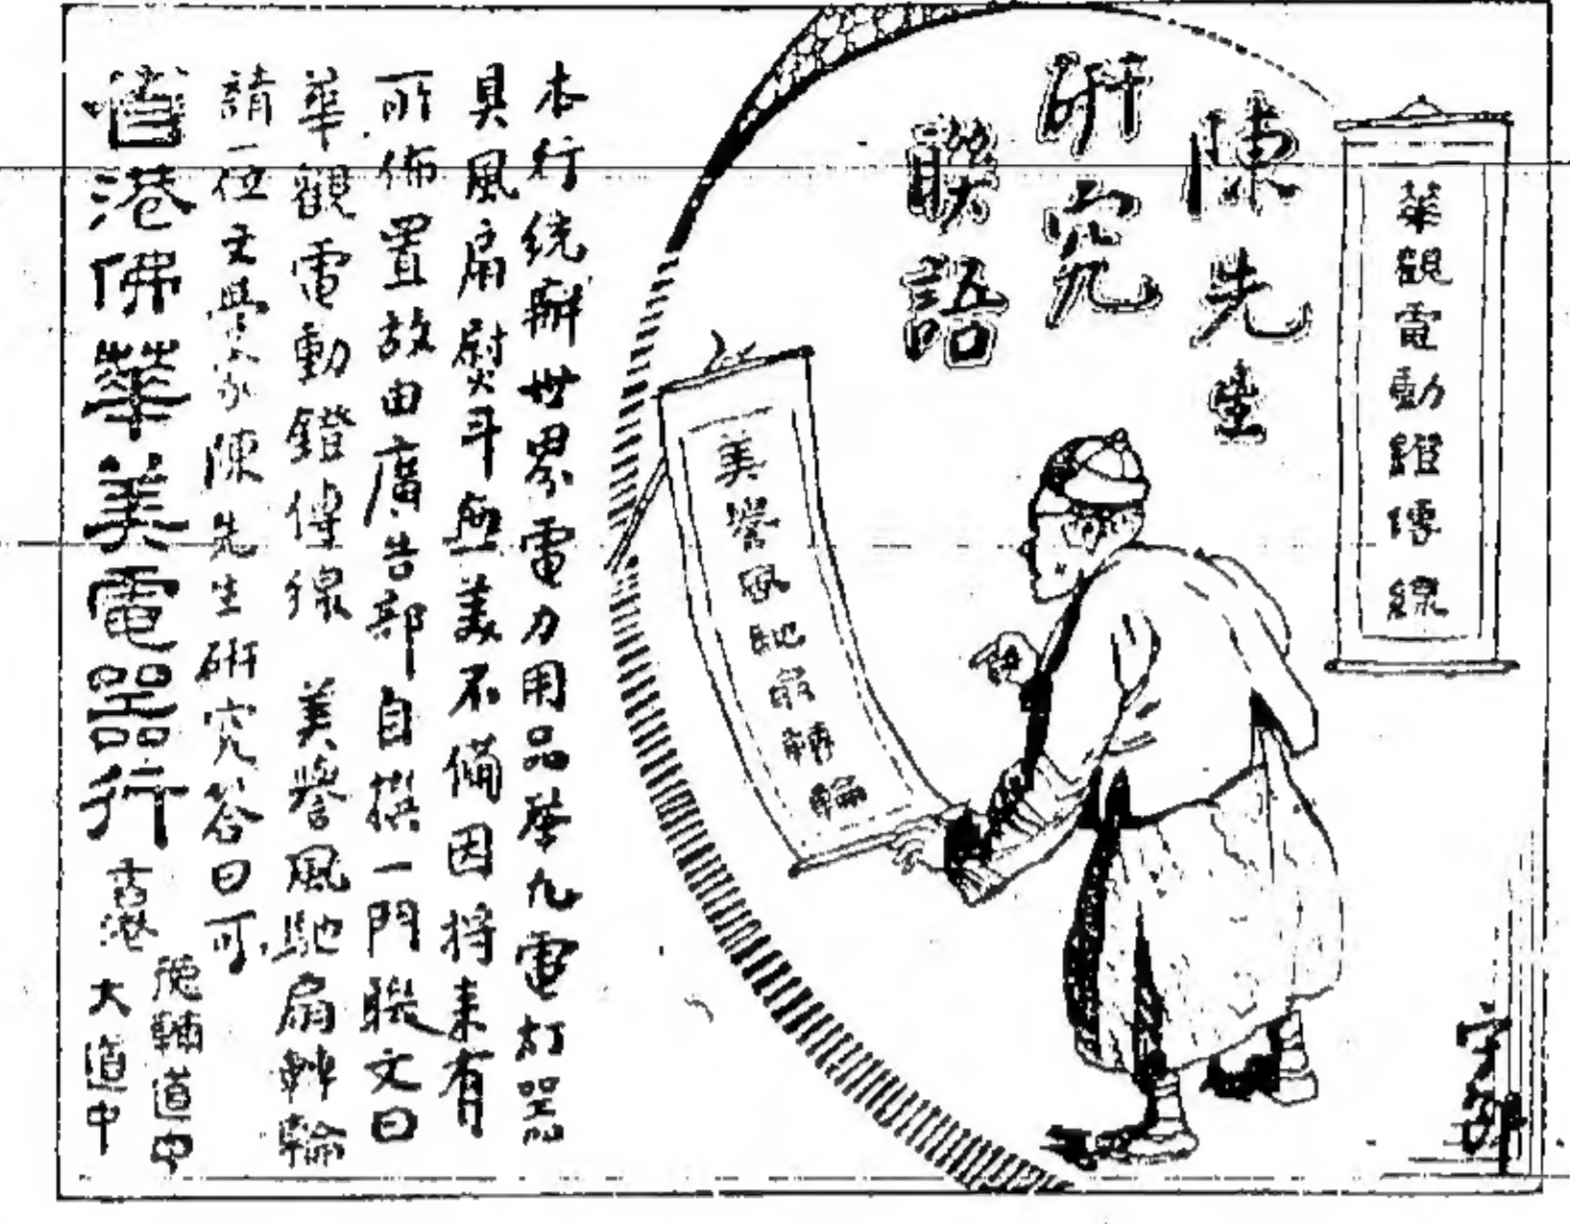 華觀電動鐙傳線
陳先生
研究
聯語
美譽風馳扇轉輪
本行統辦世界電力用品舉凡電灯器
具風扇熨斗無美不備因將來有
所佈置故由廣告部自撰一門聯文曰
華觀電動鐙傳線　美譽風馳扇轉輪
請一位文學家陳先生研究答曰可
省港佛華美電器行
香港
德輔道中
大道中